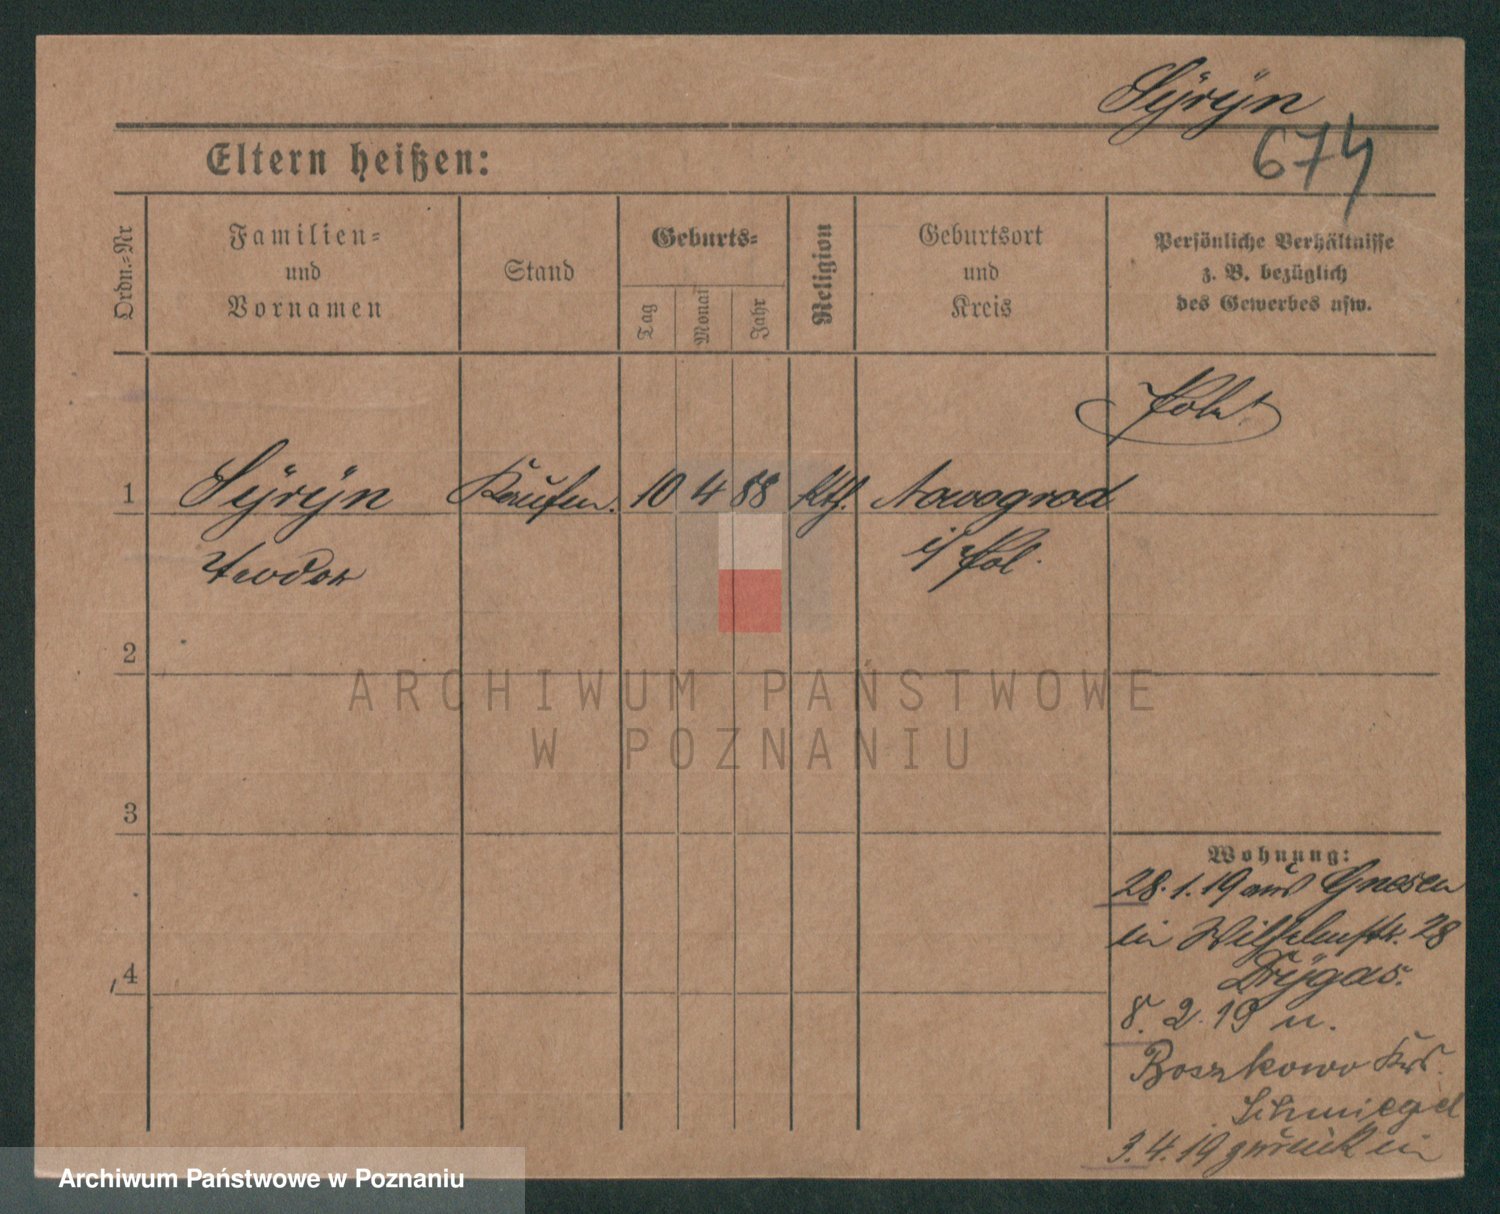 Syryn
674
Eltern heißen:
Ordn.=Nr
Familien=
und
Vornamen
Stand
Geburts=
Tag
Monat
Jahr
Religion
Geburtsort
und
Kreis
Persönliche Verhältnisse
z. B. bezüglich
des Gewerbes usw.
1
Sÿrÿn Kaufm. 10 4 88 Kth. Nowogrod
Teodor i/ Pol.
2
3
4
Wohnung:
28.1.19 aus Gnesen
in Wilhelmstr. 28
Drÿgas.
8.2.19 n.
Boszkowo Krs.
Schmiegel
3.4.19 zurück in
ARCHIWUM PAŃSTWOWE
W POZNANIU
Archiwum Państwowe w Poznaniu